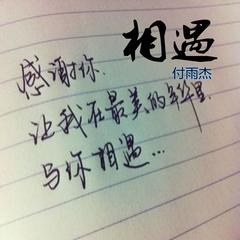 相遇
付雨杰
感谢你.
让我在最美的年华里.
与你相遇...